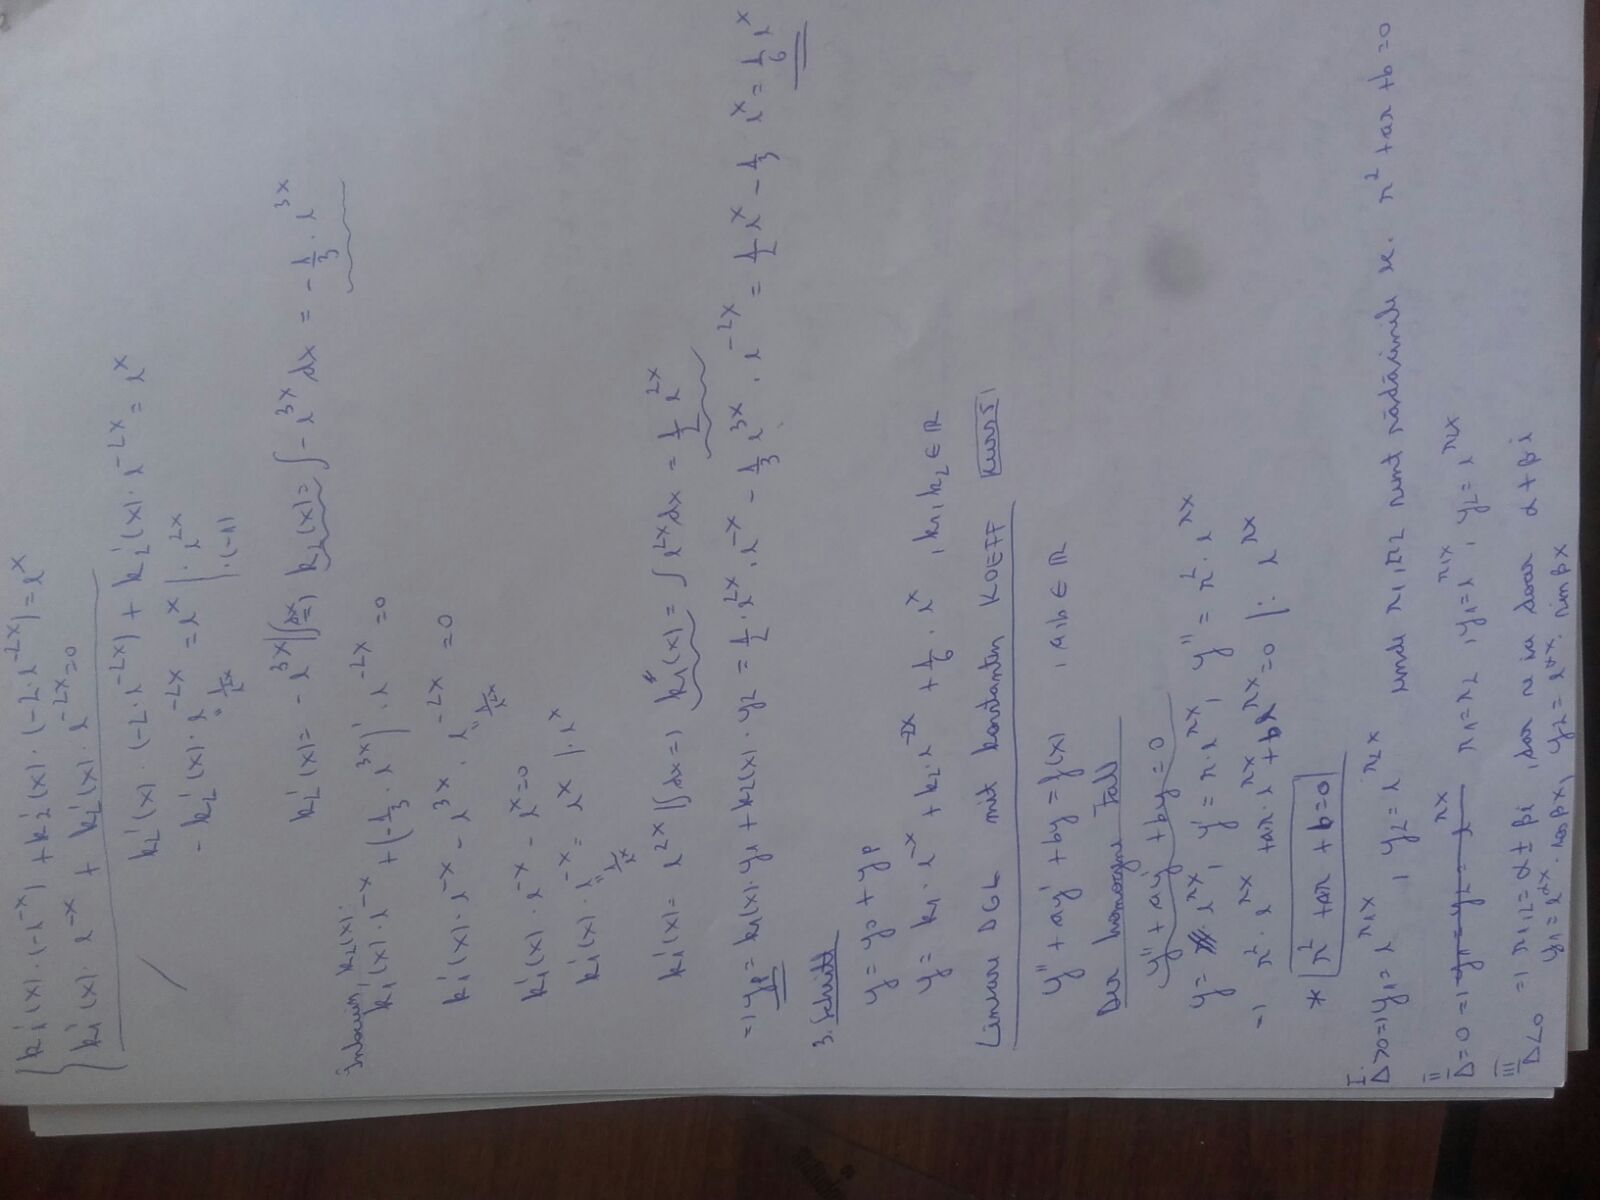 k₁'(x)·(-e^{-x}) + k₂'(x)·(-2·e^{-2x}) = e^x
k₁'(x)·e^{-x} + k₂'(x)·e^{-2x} = 0
k₂'(x)·(-2·e^{-2x}) + k₂'(x)·e^{-2x} = e^x
-k₂'(x)·e^{-2x} = e^x |·e^{2x}
" 1/e^{2x} |·(-1)
k₂'(x) = -e^{3x} |∫dx => k₂(x) = ∫-e^{3x}dx = -1/3·e^{3x}
k₂(x):
k₁'(x)·e^{-x} + (-1/3·e^{3x})'·e^{-2x} = 0
k₁'(x)·e^{-x} - e^{3x}·e^{-2x} = 0
" 1/e^{2x}
k₁'(x)·e^{-x} - e^x = 0
k₁'(x)·e^{-x} = e^x |·e^x
" 1/e^x
k₁'(x) = e^{2x} |∫dx => k₁(x) = ∫e^{2x}dx = 1/2 e^{2x}
=> yp = k₁(x)·y₁ + k₂(x)·y₂ = 1/2·e^{2x}·e^{-x} - 1/3 e^{3x}·e^{-2x} = 1/2 e^x - 1/3 e^x = 1/6 e^x
3. Schritt
y = y₀ + yp
y = k₁·e^{-x} + k₂·e^{-2x} + 1/6·e^x , k₁,k₂ ∈ ℝ
Lineare DGL mit konstanten KOEFF Kurs 5
y'' + ay' + by = f(x) , a,b ∈ ℝ
Der homogene Fall
y'' + ay' + by = 0
y = e^{rx}, y' = r·e^{rx}, y'' = r²·e^{rx}
=> r²·e^{rx} + ar·e^{rx} + be^{rx} = 0 |: e^{rx}
* r² + ar + b = 0
I. Δ>0 => y₁ = e^{r₁x}, y₂ = e^{r₂x} unde r₁,r₂ sunt rădăcinile ec. r² + ar + b = 0
II Δ=0 => y₁ = y₂ = e^{rx} r₁=r₂ , y₁=e^{r₁x}, y₂ = e^{r₂x}
III Δ<0 => r₁,₂ = α ± βi , dar se ia doar α+βi
y₁ = e^{αx}·cos βx, y₂ = e^{αx}·sin βx